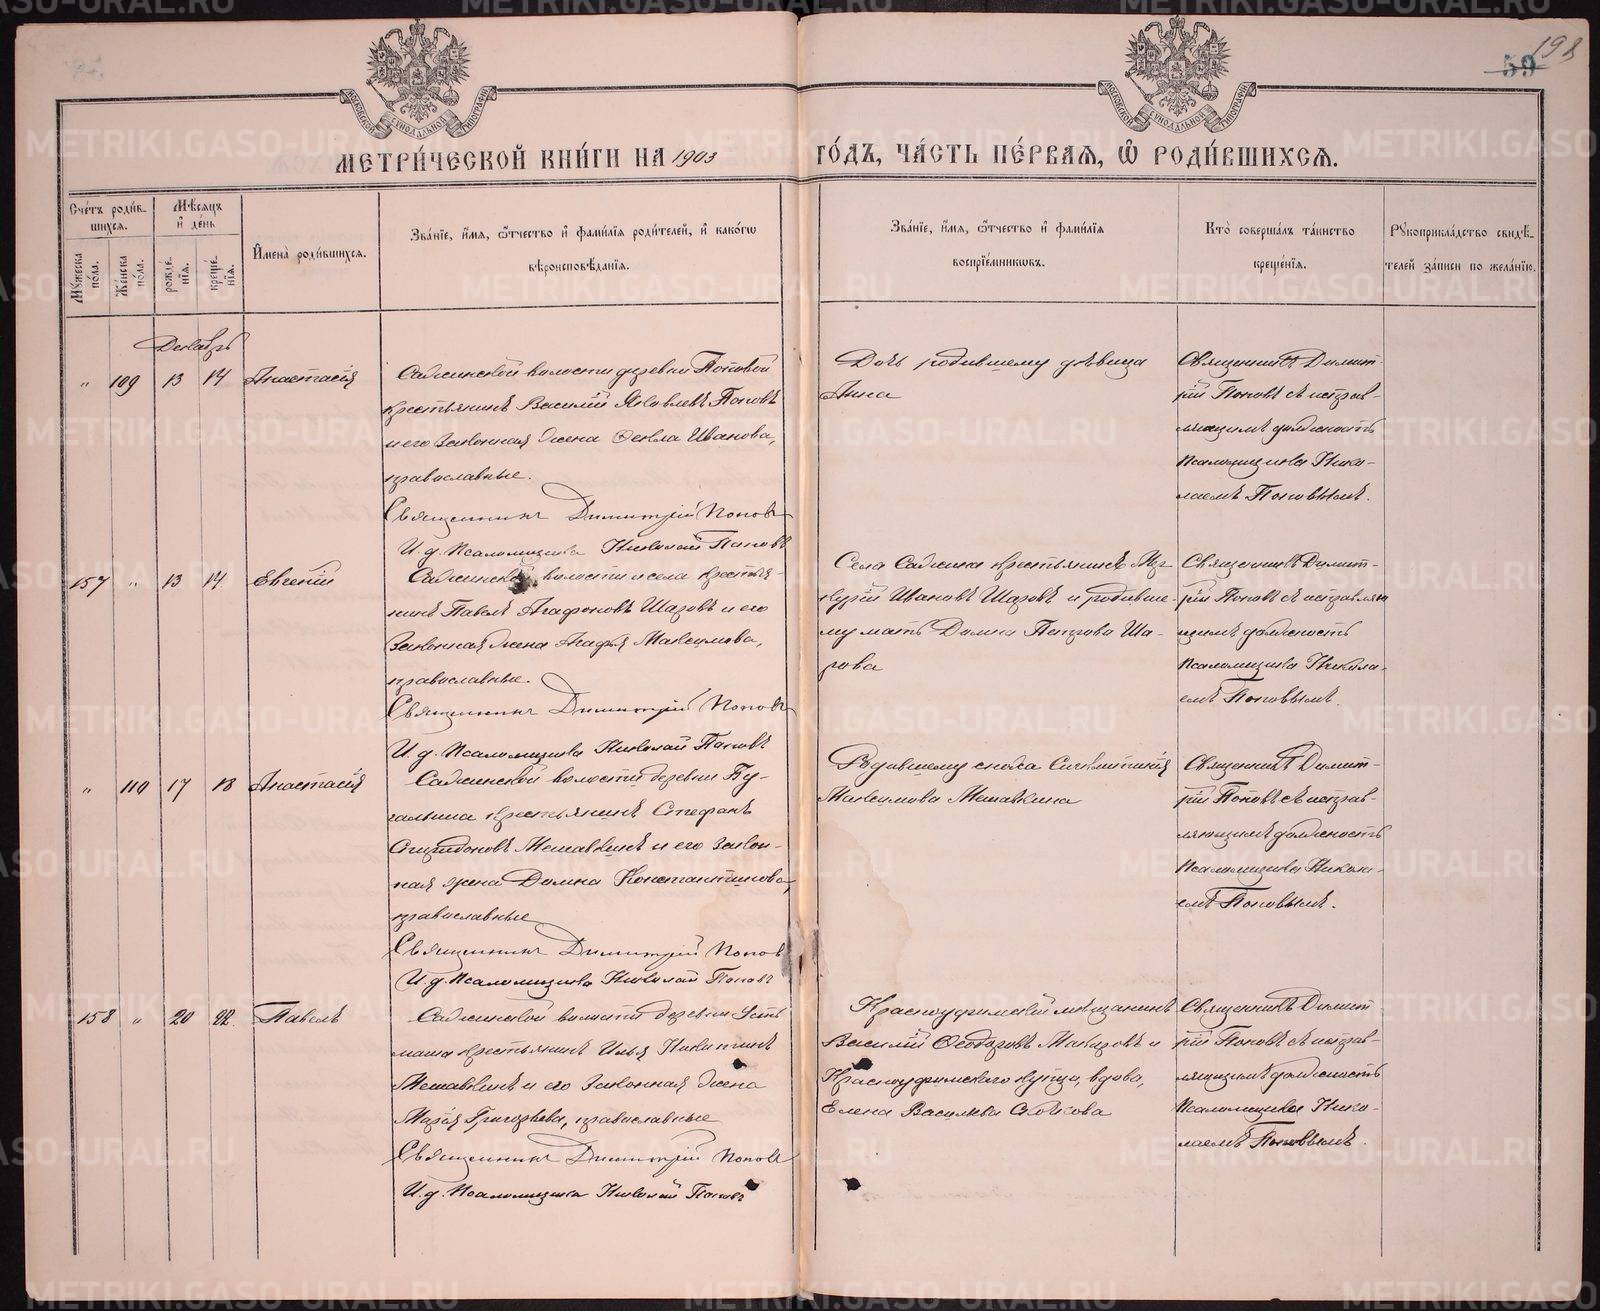 198
59
МОСКОВСКОЙ СѴНОДАЛЬНОЙ ТИПОГРАФІИ
МОСКОВСКОЙ СѴНОДАЛЬНОЙ ТИПОГРАФІИ
МЕТРИ́ЧЕСКОЙ КНИ́ГИ НА 1903 ГО́ДЪ, ЧА́СТЬ ПЕ́РВАЯ, Ѡ РОДИ́ВШИХСЯ.
Сче́тъ роди́в-
шихся.
Му́жеска по́ла.
Же́нска по́ла.
Мѣ́сяцъ
и де́нь
рожде́-
нія.
креще́-
нія.
Имена̀ роди́вшихся.
Зва́ніе, и́мя, о́тчество и фами́лія роди́телей, и како́гѡ
вѣроисповѣ́данія.
Зва́ніе, и́мя, о́тчество и фами́лія
воспріе́мниковъ.
Кто̀ соверша́лъ та́инство
креще́нія.
Рукоприкла́дство свидѣ́-
телей за́писи по жела́нію.
Декабрь
" 109 13 14 Анастасія
Сажинской волости деревни Поповой
крестьянинъ Василій Яковлевъ Поповъ
и его законная жена Фекла Иванова,
православные.
Священникъ Димитрій Поповъ
И. д. Псаломщика Николай Поповъ
Дочь родившему дѣвица
Анна
Священникъ Димит-
рій Поповъ съ исправ-
ляющимъ должность
псаломщика Нико-
лаемъ Поповымъ.
157 " 13 14 Евгеній
Сажинской волости и села кресть-
нинъ Павелъ Агафоновъ Шаровъ и его
законная жена Агафья Максимова,
православные.
Священникъ Димитрій Поповъ
И. д. Псаломщика Николай Поповъ
Села Сажина крестьянинъ Мер-
курій Ивановъ Шаровъ и родивше-
му мать Домна Петрова Ша-
рова
Священникъ Димит-
рій Поповъ съ исправляю
щимъ должность
псаломщика Никола-
емъ Поповымъ.
" 110 17 18 Анастасія
Сажинской волости деревни Бу-
галыша крестьянинъ Стефанъ
Спиридоновъ Мешавкинъ и его закон-
ная жена Домна Константинова,
православные
Священникъ Димитрій Поповъ
И. д. Псаломщика Николай Поповъ
Родившему сноха
Максимова Мешавкина
Священникъ Димит-
рій Поповъ съ исправ-
ляющимъ должность
псаломщика Никола-
емъ Поповымъ.
158 " 20 22 Павелъ
Сажинской волости деревни Усть
маша крестьянинъ Илья Никитинъ
Мешавкинъ и его законная жена
Марія Григорьева, православные
Священникъ Димитрій Поповъ
И. д. Псаломщика Николай Поповъ
Красноуфимскій мѣщанинъ
Василій Ѳеодоровъ Макаровъ и
Красноуфимскаго купца, вдова,
Елена Васильева
Священникъ Димит
рій Поповъ съ исправ-
ляющимъ должность
псаломщика Нико-
лаемъ Поповымъ.
METRIKI.GASO-URAL.RU